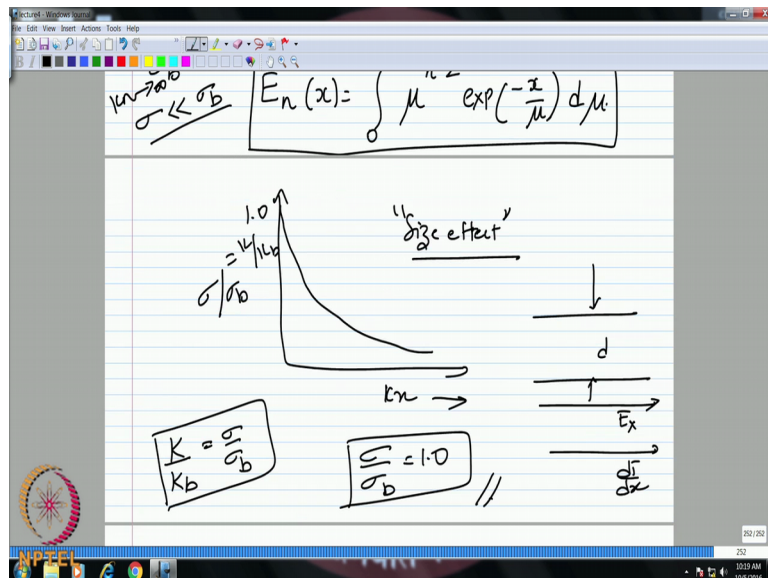 lecture4 - Windows Journal
File Edit View Insert Actions Tools Help
Kn→∞
σ << σb
En(x) = ∫0 μ^n-2 exp(-x/μ) dμ.
1.0
"Size effect"
= K/Kb
σ/σb
d
Kn →
Ex
K/Kb = σ/σb
σ/σb = 1.0 //
dT/dx
252/252
252
NPTEL
10:19 AM